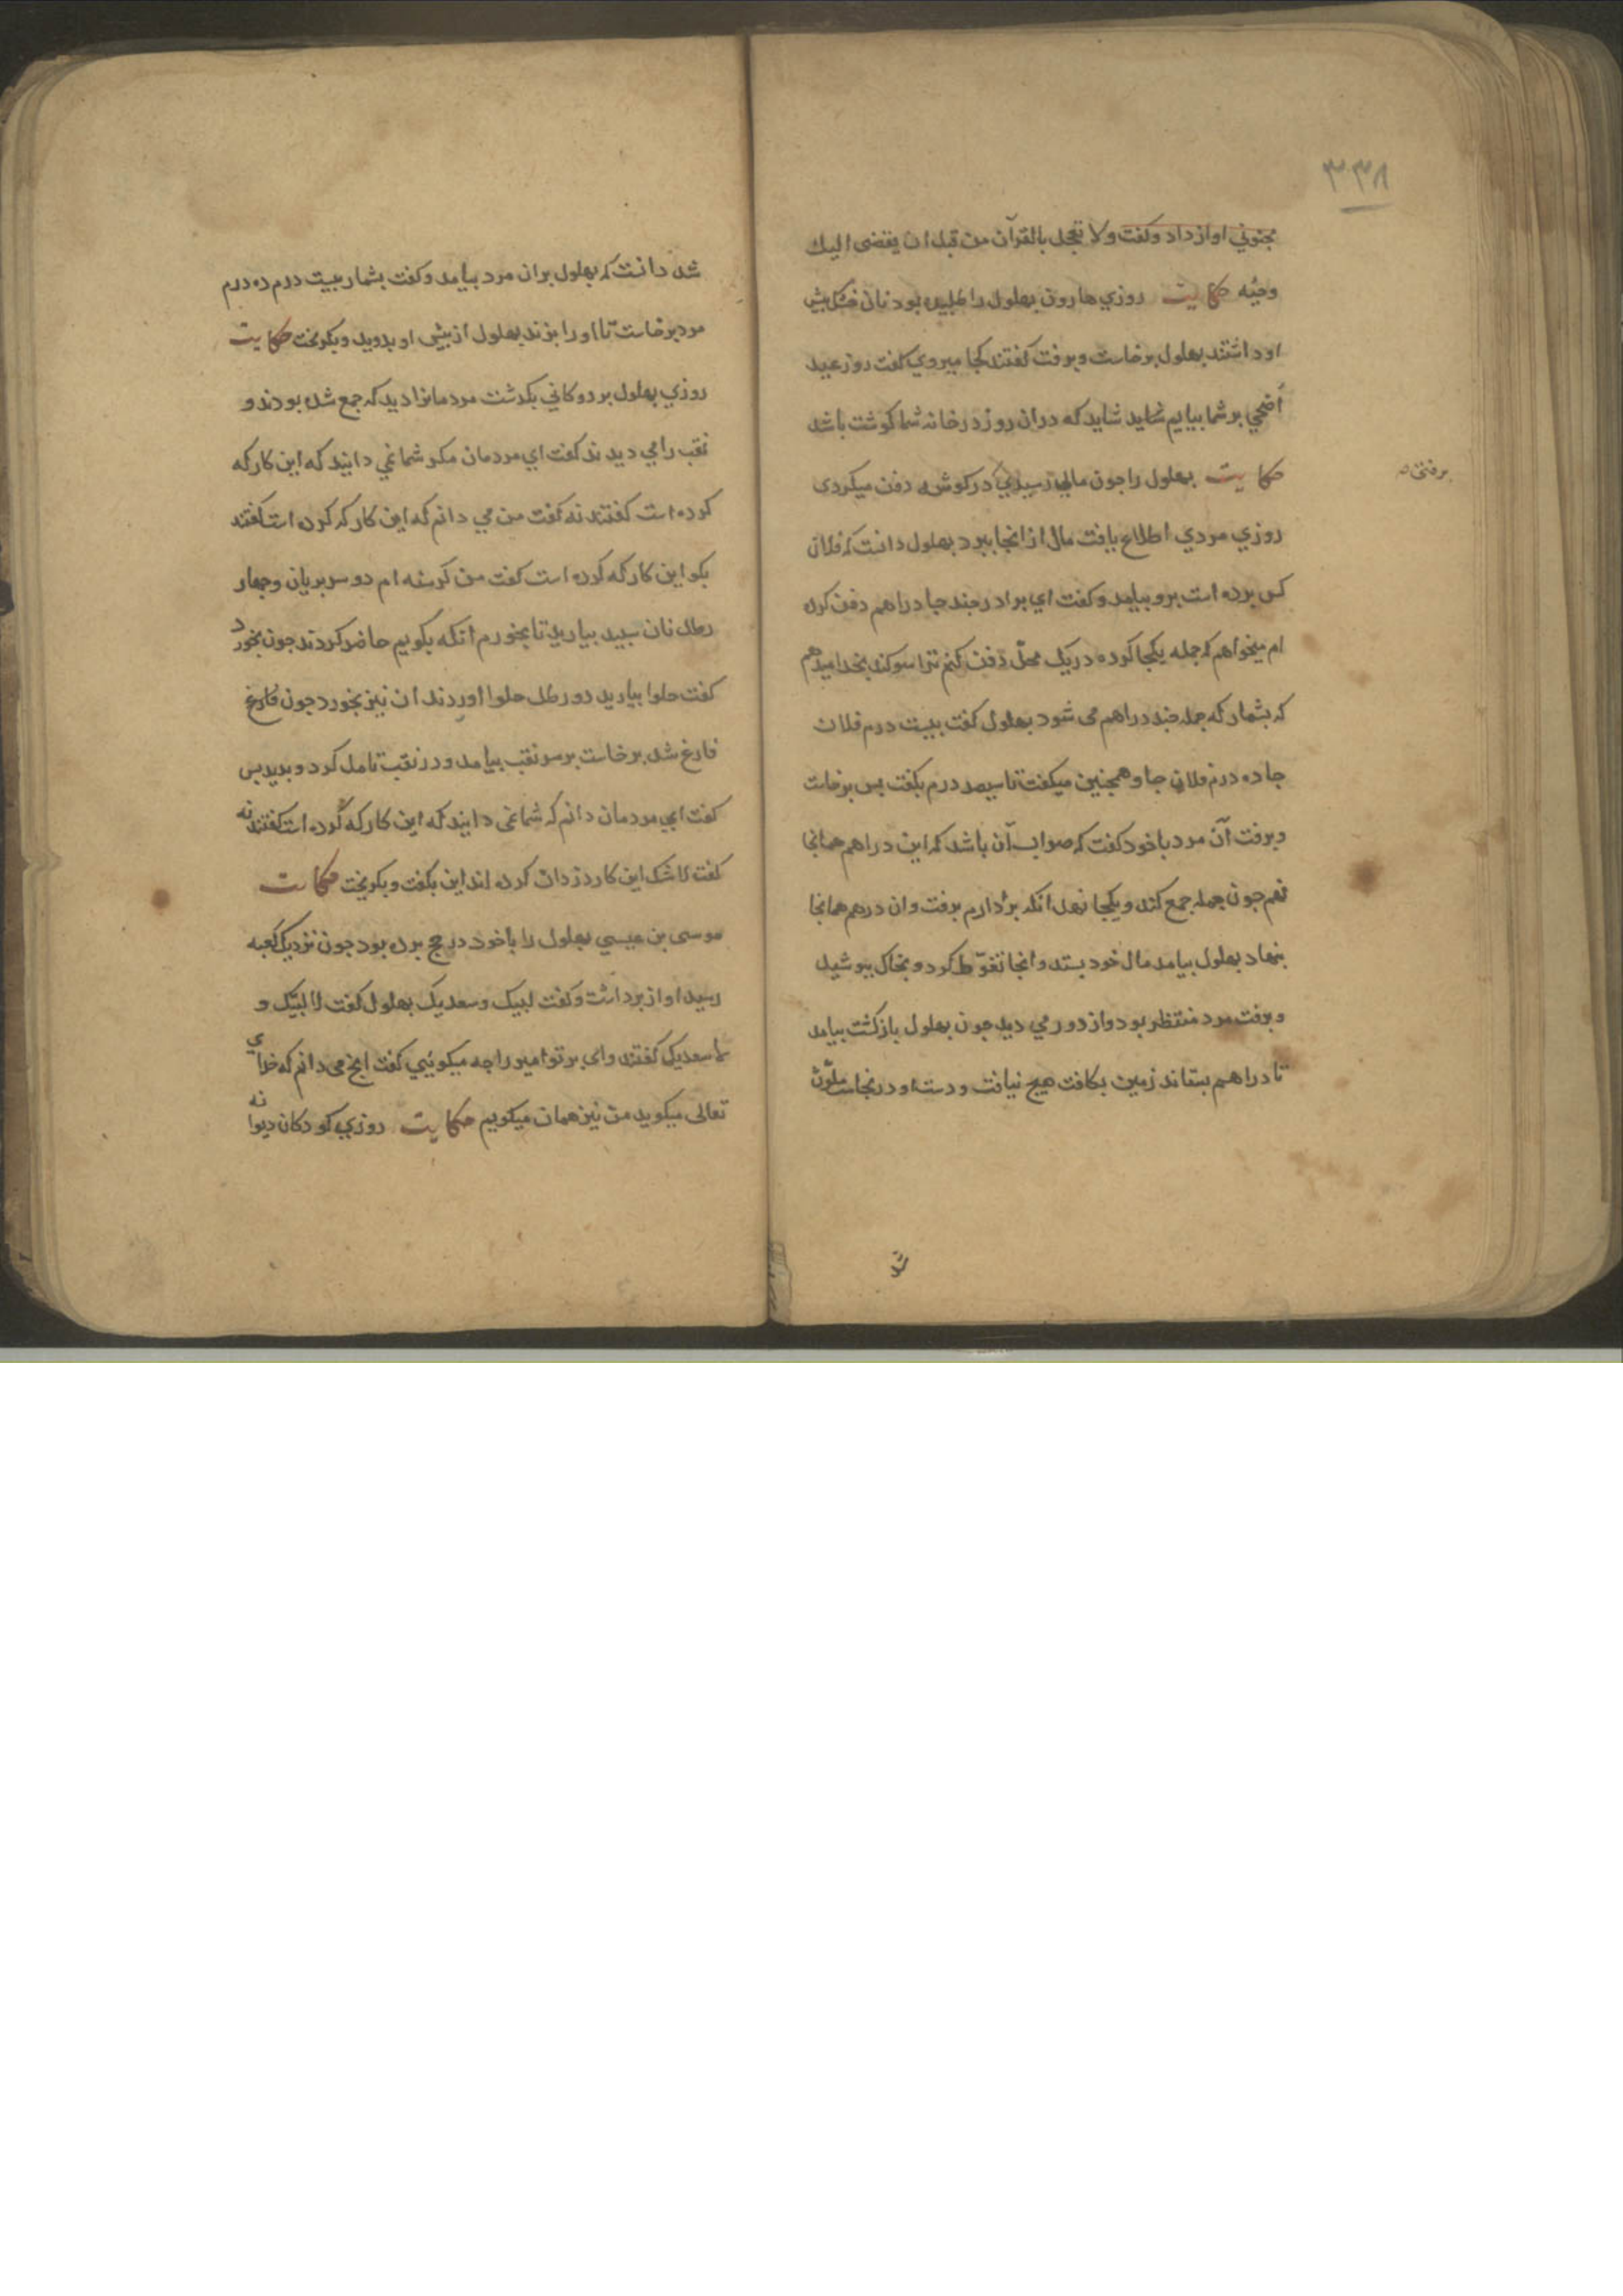 ۳۳۸
مجنوني اواز داد وكفت ولا تعجل بالقرآن من قبل ان يقضى اليك
وحيه حكايت روزي هارون بهلول را طلبيده بود نان خشك پيش
او داشتند بهلول برخاست وبرفت كفتند كجا ميروي كفت روز عيد
أضحي بر شما بيايم شايد كه دران روز در خانه شما كوشت باشد
حكايت بهلول را جون مالي رسيدي در كوشه دفن ميكردى
برفتن
روزي مردي اطلاع يافت مال از انجا ببرد بهلول دانست كه فلان
كس برده است برو بيامد وكفت اي برادر جند جا دراهم دفن كرده
ام ميخواهم كه جمله يكجا كرده در يك محلّ دفن كنم ترا سوكند بخدا ميدهم
كه بشمار كه جمله جند دراهم مى شود بهلول كفت بيست درم فلان
جا ده درم فلان جا وهمجنين ميكفت تا سيصد درم بكفت بس برخاست
وبرفت آن مرد با خود كفت كه صواب آن باشد كه اين دراهم همانجا
نهم جون جمله جمع كند ويكجا نهد انكه بردارم برفت وان درهم همانجا
بنهاد بهلول بيامد مال خود بستد وانجا تغوّط كرد و بخاك بپوشيد
وبرفت مرد منتظر بود واز دور مي ديد جون بهلول باز كشت بيامد
تا دراهم بستاند زمين بكافت هيج نيافت ودست او در نجاست ملوّث
شد
شد دانست كه بهلول بران مرد بيامد وكفت بشمار بيست درم ده درم
مرد برخاست تا او را بزند بهلول از پيش او بدويد وبكريخت حكايت
روزي بهلول بر دوكاني بكذشت مردمانرا ديد كه جمع شده بودند و
نقب را مي ديدند كفت اي مردمان مكر شما نمي دانيد كه اين كار كه
كرده است كفتند نه كفت من مي دانم كه اين كار كه كرده است كفتند
بكو اين كار كه كرده است كفت من كرسنه ام دو سر بريان وجهار
رطل نان سپيد بياريد تا بخورم انكه بكويم حاضر كردند جون بخورد
كفت حلوا بياريد دو رطل حلوا اوردند ان نيز بخورد جون فارغ
فارغ شد برخاست بر سر نقب بيامد ودر نقب تامل كرد وبديد بس
كفت اي مردمان دانم كه شما نمى دانيد كه اين كار كه كرده است كفتند نه
كفت لا شك اين كار دزدان كرده اند اين بكفت وبكريخت حكايت
موسى بن عيسي بهلول را با خود در حج برده بود جون نزديك كعبه
رسيد اواز برداشت وكفت لبيك وسعديك بهلول كفت لا لبيك و
لا سعديك كفتند واى بر تو امير را جه ميكوئيي كفت انج مى دانم كه خداي
تعالى ميكويد من نيز همان ميكويم حكايت روزي كودكان ديوانه